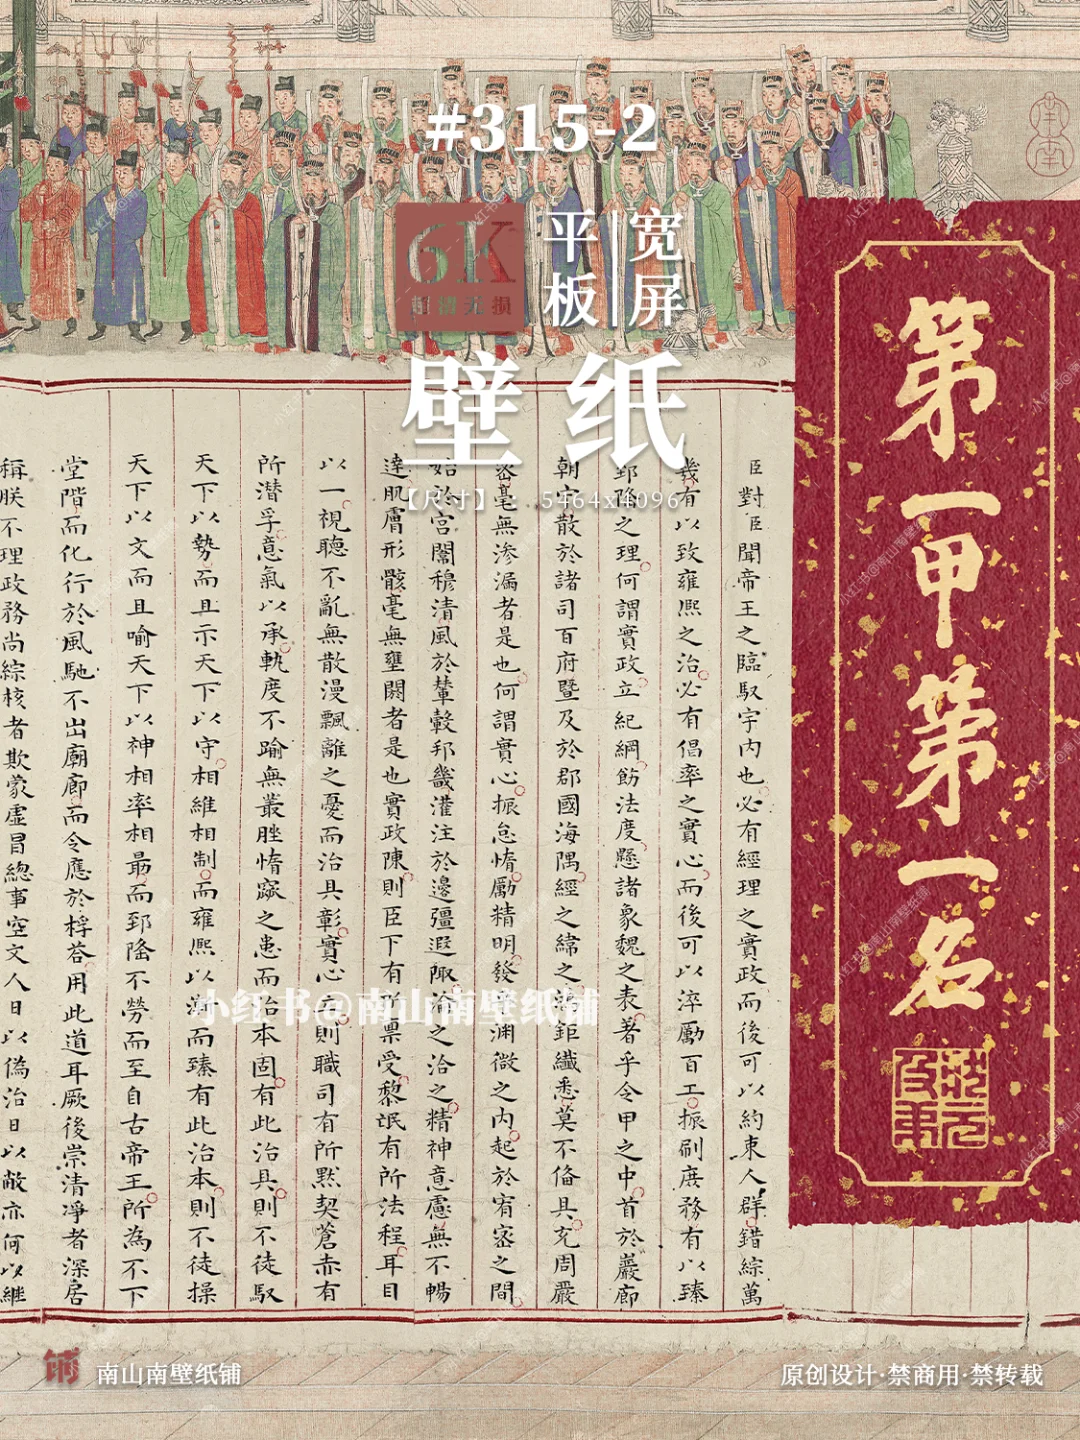 #315-2
6K
超清无损
平板
宽屏
壁纸
【尺寸】 5464x4096
第一甲第一名
南南
臣對臣聞帝王之臨馭宇內也必有經理之實政而後可以約束人群錯綜萬
幾有以致雍熙之治必有倡率之實心而後可以淬勵百工振刷庶務有以臻
郅隆之理何謂實政立紀綱飭法度懸諸象魏之表著乎令甲之中首於巖廊
朝宁散於諸司百府暨及於郡國海隅經之緯之鴻鉅纖悉莫不俻具充周嚴
密毫無滲漏者是也何謂實心振怠惰勵精明發乎淵微之內起於宥密之間
始於宮闈穆清風於輦轂邦畿灌注於邊疆遐陬淪之洽之精神意慮無不暢
達肌膚形骸毫無壅閼者是也實政陳則臣下有所稟受黎氓有所法程耳目
以一視聽不亂無散漫飄離之憂而治具彰實心立則職司有所默契蒼赤有
所潜孚意氣以承軌度不踰無叢脞惰窳之患而治本固有此治具則不徒馭
天下以勢而且示天下以守相維相制而雍熙以漸而臻有此治本則不徒操
天下以文而且喻天下以神相率相勗而郅隆不勞而至自古帝王所為不下
堂階而化行於風馳不出廟廊而令應於桴荅用此道耳厥後崇清凈者深居
稱朕不理政務尚綜核者欺蒙虛冒總事空文人日以偽治日以敝亦何以繼
小红书@南山南壁纸铺
南山南壁纸铺
原创设计·禁商用·禁转载